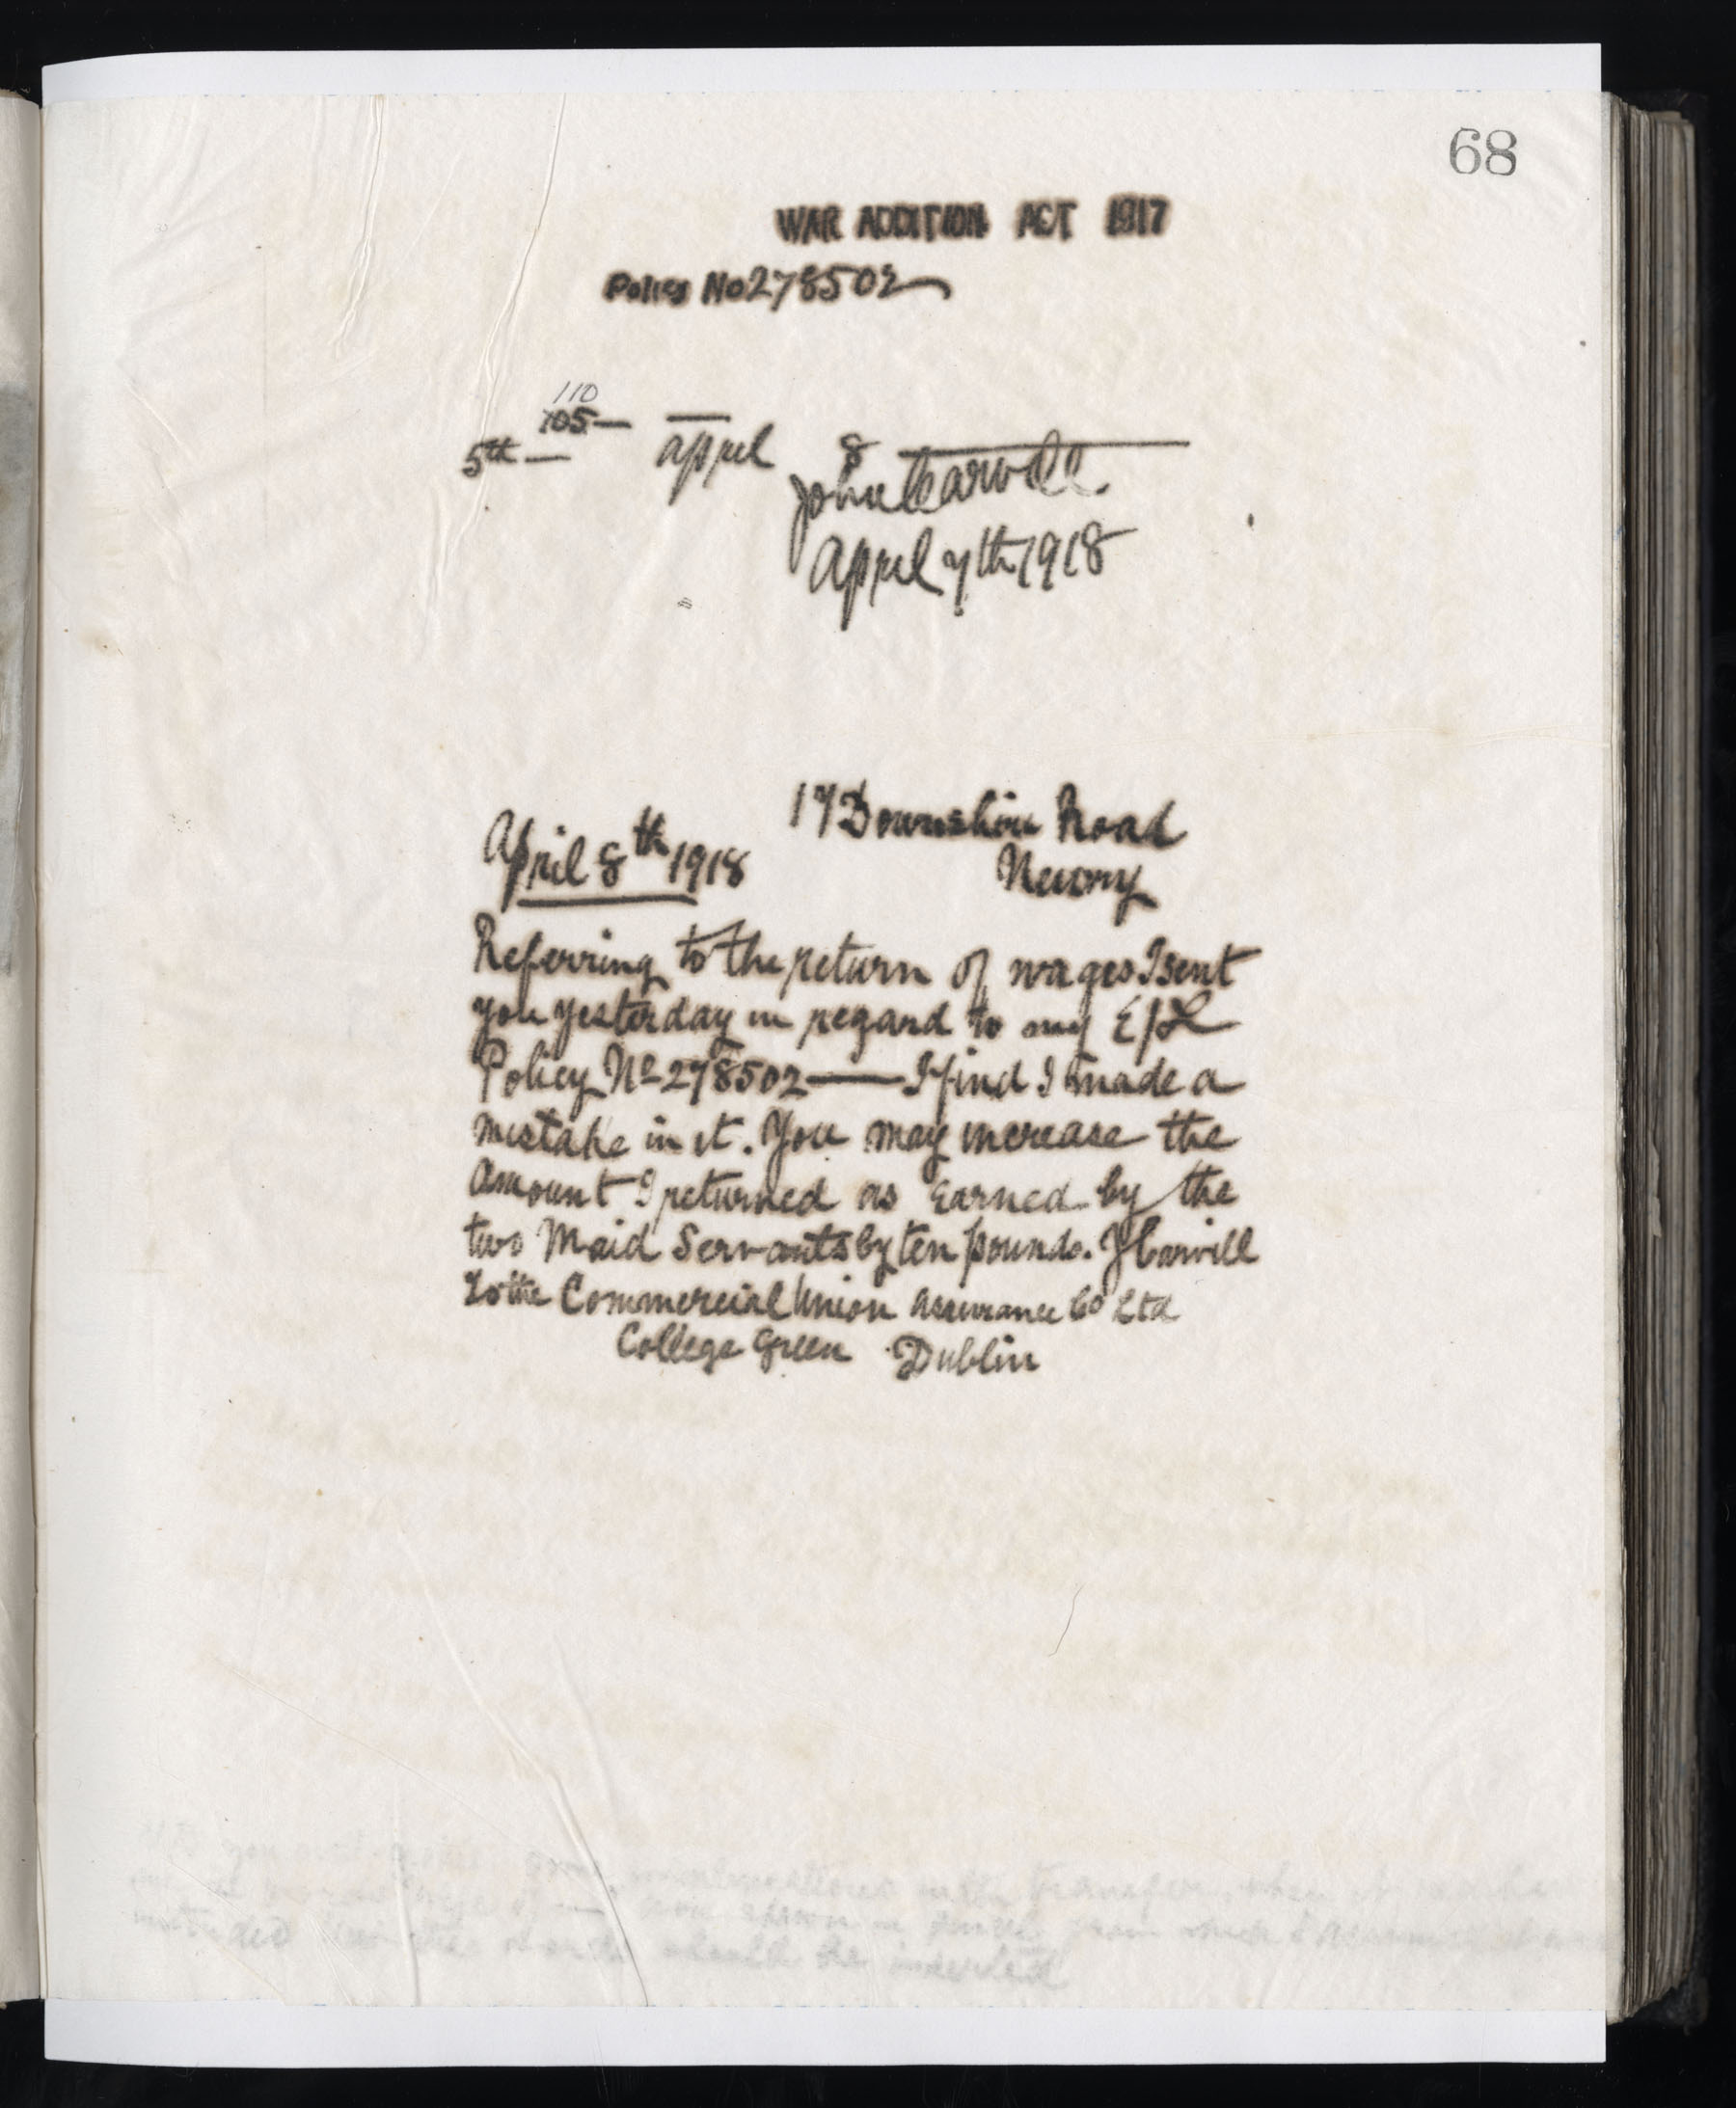 68
WAR ADDITION ACT 1917
Policy No 278502
110
105—
5th — april 8
John Carvill.
April 7th 1918
17 Downshire Road
April 8th 1918
Newry
Referring to the return of wages I sent
you yesterday in regard to my E/L
Policy No 278502 —— I find I made a
mistake in it. You may increase the
amount I returned as Earned by the
two Maid Servants by ten pounds. J Carvill
To the Commercial Union Assurance Co Ltd
College Green Dublin